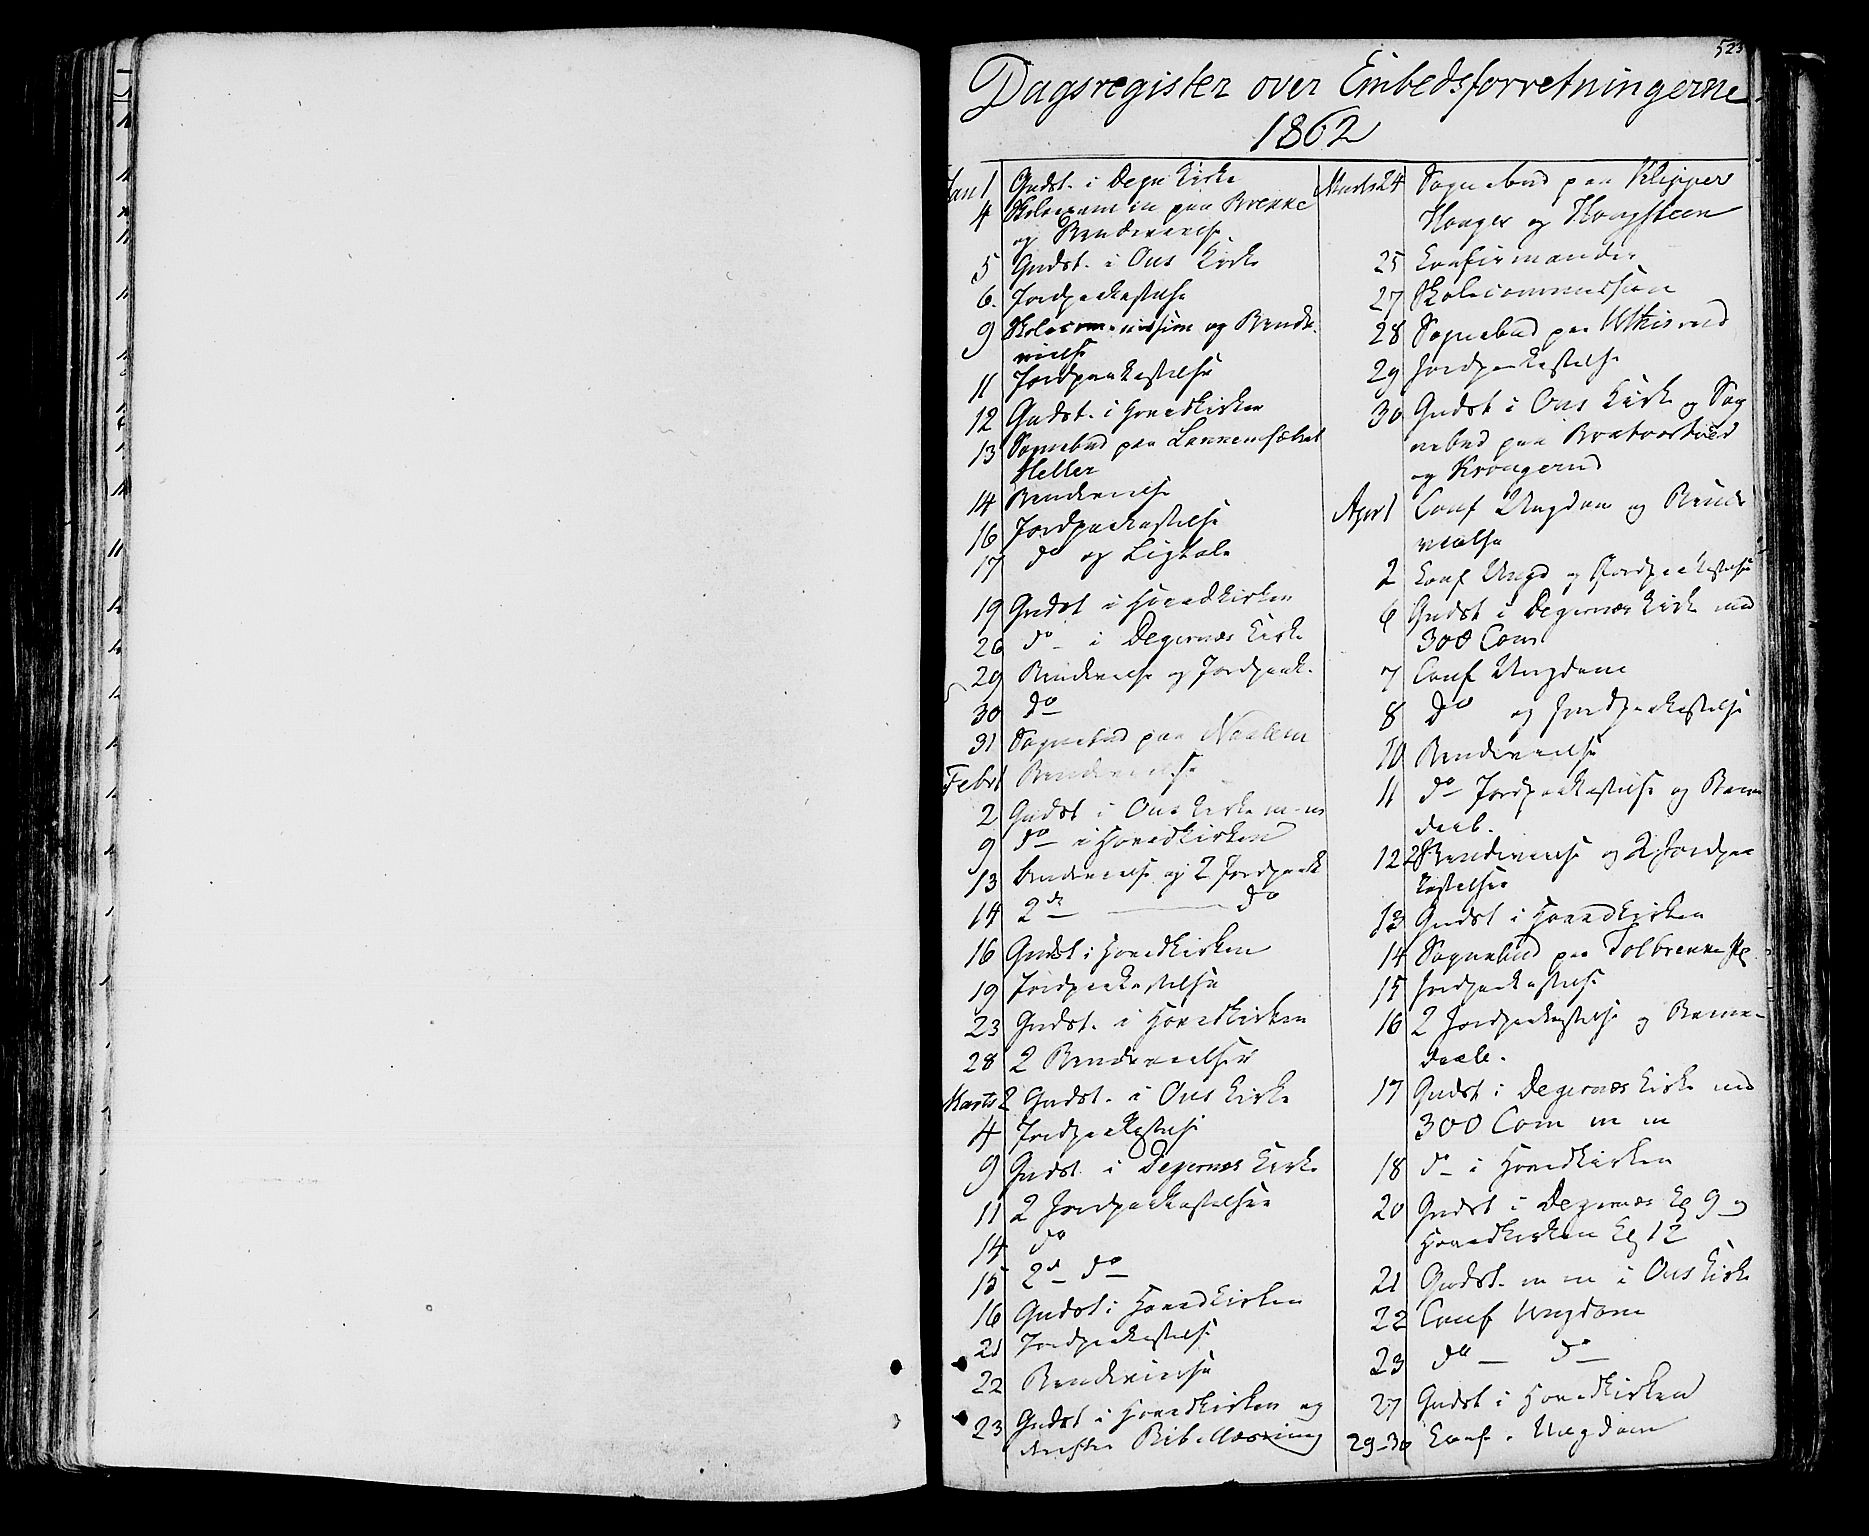 523
Dagsregister over Embedsforretningerne
1862
Jan 1 Gudst. i Degn Kirke
4 Skoleexamen paa Brekke
og Brudevielse
5 Gudst. i Ous Kirke
6. Jordpaakastelse
9 Skolecommission og Brude-
vielse
11 Jordpaakastelse
12 Gudst. i Hovedkirken
13 Sognebud paa
Heller
14 Brudevielse
16 Jordpaakastelse
17 do og Ligtale
19 Gudst i Hovedkirken
26 do i Degernæs Kirke
29 Brudevielse og Jordpaak.
30 do
31 Sognebud paa
Febr 1 Brudevielse
2 Gudst i Ous Kirke m-m
9 do i Hovedkirken
13 Brudevielse og 2 Jordpaak
14 2 do do
16 Gudst i Hovedkirken
19 Jordpaakastelse
23 Gudst. i Hovedkirken
28 2 Brudevielser
Marts 2 Gudst. i Ous Kirke
4 Jordpaakastelse
9 Gudst. i Degernæs Kirke
11 2 Jordpaakastelser
14 do
15 2 do do
16 Gudst i Hovedkirken
21 Jordpaakastelse
22 Brudevielse
23 Gudst i Hovedkirken og
derefter Bibellæsning
Marts 24 Sognebud paa
Hauger og
25 Confirmander
27 Skolecommission
28 Sognebud paa
29 Jordpaakastelse
30 Gudst i Ous Kirke og Sog
nebud paa
og
Apr 1 Conf Ungdom og Brude
vielse
2 Conf Ungd og Jordpaakastelse
6 Gudst i Degernæs Kirke med
300 Com
7 Conf Ungdom
8 do og Jordpaakastelse
10 Brudevielse
11 do Jordpaakastelse og Barne
daab.
12 2 Brudevielse og 2 Jordpaa
kastelser
13 Gudst i Hovedkirken
14 Sognebud paa
15 Jordpaakastelse
16 2 Jordpaakastelse og Barne-
daab.
17 Gudst i Degernæs Kirke med
300 Com m m
18 do i Hovedkirken
20 Gudst i Degernæs Kl 9 og
Hovedkirken Kl 12
21 Gudst. m m i Ous Kirke
22 Conf Ungdom
23 do do
27 Gudst i Hovedkirken
29-30 Conf. Ungdom